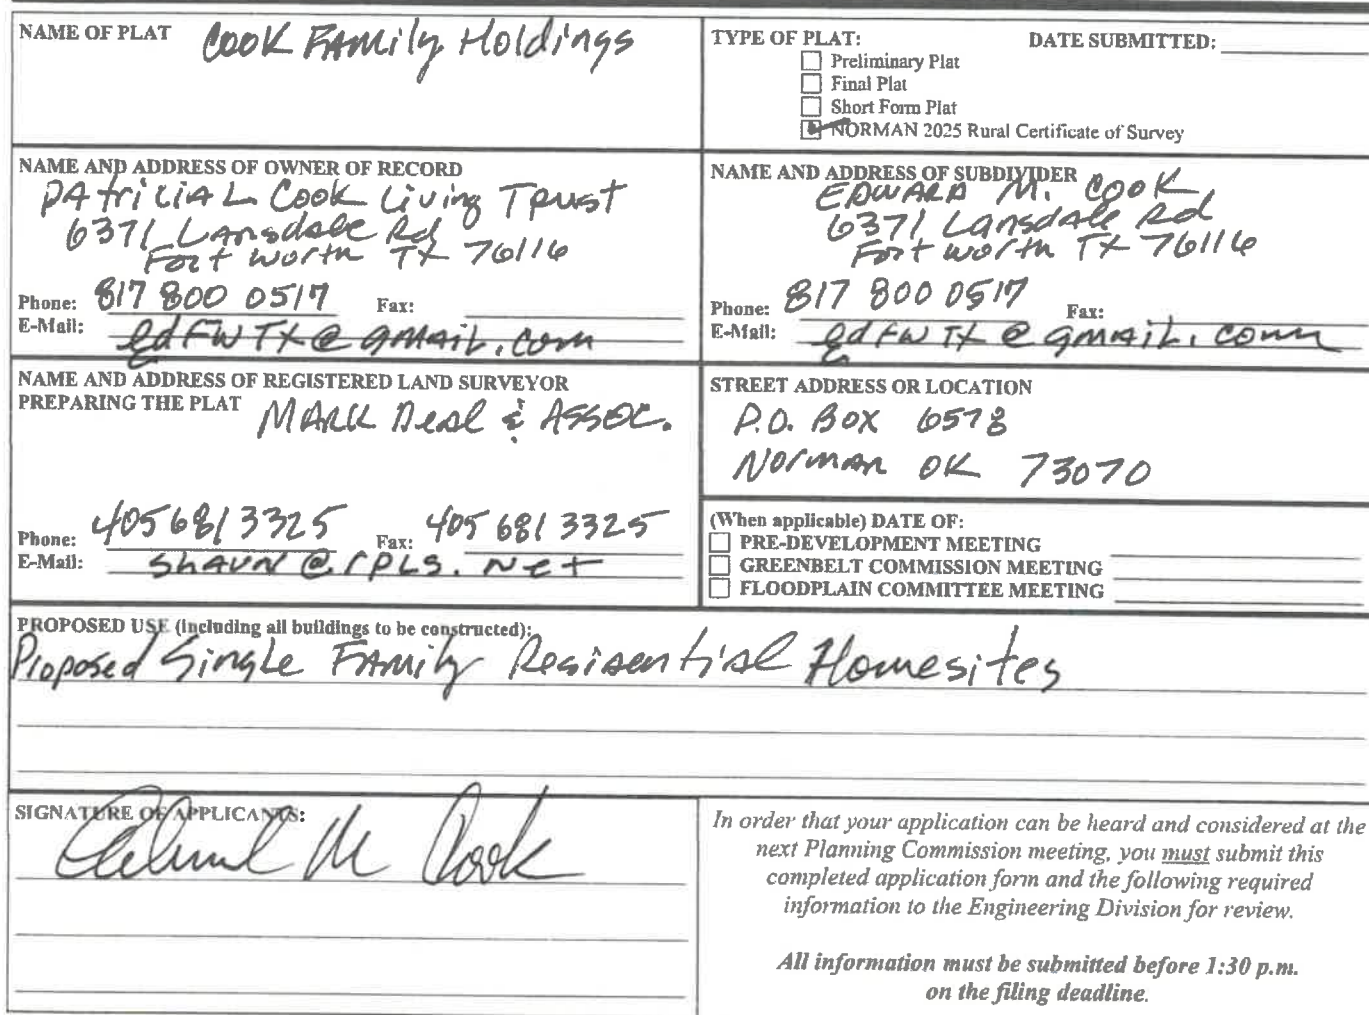 NAME OF PLAT COOK FAMily Holdings
TYPE OF PLAT: DATE SUBMITTED:
Preliminary Plat
Final Plat
Short Form Plat
NORMAN 2025 Rural Certificate of Survey
NAME AND ADDRESS OF OWNER OF RECORD
PAtriciA L Cook Living Trust
6371 Lansdale Rd
Fort Worth TX 76116
Phone: 817 800 0517 Fax:
E-Mail: edFWTX@gmail.com
NAME AND ADDRESS OF SUBDIVIDER
EDWARD M. COOK
6371 Lansdale Rd
Fort Worth TX 76116
Phone: 817 800 0517 Fax:
E-Mail: edFWTX@gmail.com
NAME AND ADDRESS OF REGISTERED LAND SURVEYOR
PREPARING THE PLAT MARK Deal & ASSOC.
Phone: 405 681 3325 Fax: 405 681 3325
E-Mail: SHAUN@rpls.net
STREET ADDRESS OR LOCATION
P.O. BOX 6578
Norman OK 73070
(When applicable) DATE OF:
PRE-DEVELOPMENT MEETING
GREENBELT COMMISSION MEETING
FLOODPLAIN COMMITTEE MEETING
PROPOSED USE (including all buildings to be constructed):
Proposed Single Family Resisential Homesites
SIGNATURE OF APPLICANTS:
Edward M Cook
In order that your application can be heard and considered at the
next Planning Commission meeting, you must submit this
completed application form and the following required
information to the Engineering Division for review.
All information must be submitted before 1:30 p.m.
on the filing deadline.